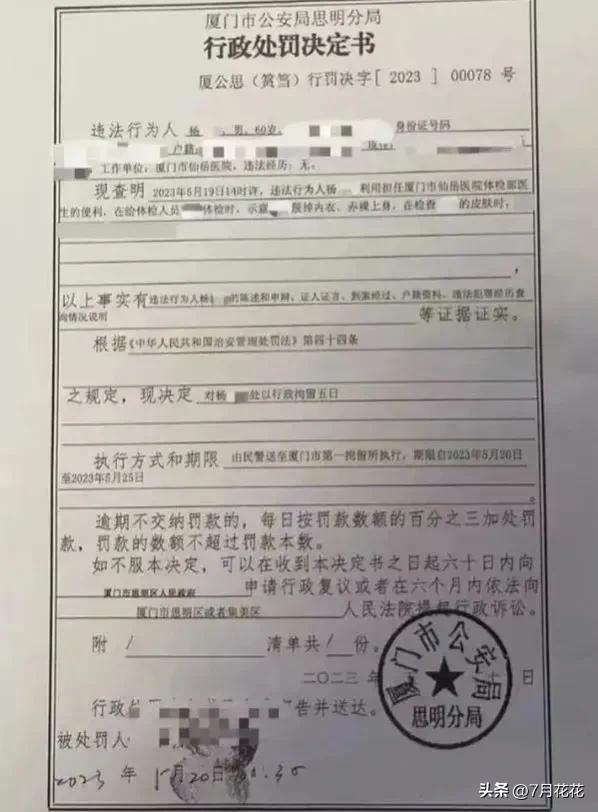 厦门市公安局思明分局
行政处罚决定书
厦公思（筼筜）行罚决字[ 2023 ] 00078 号
违法行为人 杨 ，男，60岁， 身份证号码
户籍 现住
工作单位：厦门市仙岳医院，违法经历：无。
现查明 2023年5月19日14时许，违法行为人杨 利用担任厦门市仙岳医院体检部医
生的便利，在给体检人员 体检时，示意 脱掉内衣、赤裸上身，在检查 的皮肤时，
，
以上事实有 违法行为人杨 的陈述和申辩、证人证言、到案经过、户籍资料、违法犯罪经历查
询情况说明 等证据证实。
根据 《中华人民共和国治安管理处罚法》第四十四条
之规定，现决定 对杨 处以行政拘留五日
执行方式和期限 由民警送至厦门市第一拘留所执行，期限自2023年5月20日
至2023年5月25日
。
逾期不交纳罚款的，每日按罚款数额的百分之三加处罚
款，罚款的数额不超过罚款本数。
如不服本决定，可以在收到本决定书之日起六十日内向
厦门市思明区人民政府 申请行政复议或者在六个月内依法向
厦门市思明区或者集美区 人民法院提起行政诉讼。
附 / 清单共 / 份。
二〇二三年 日
厦门市公安局
思明分局
行政 告并送达。
被处罚人
2023 年 5月20日
头条 @7月花花